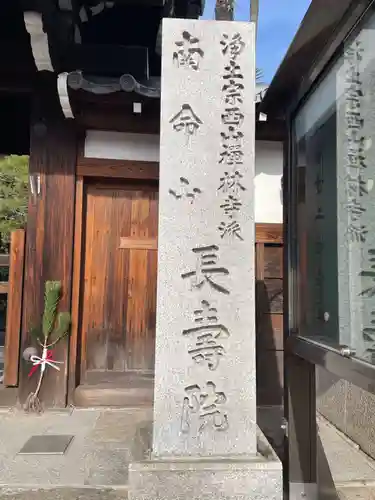 浄土宗西山禅林寺派
南命山
長壽院